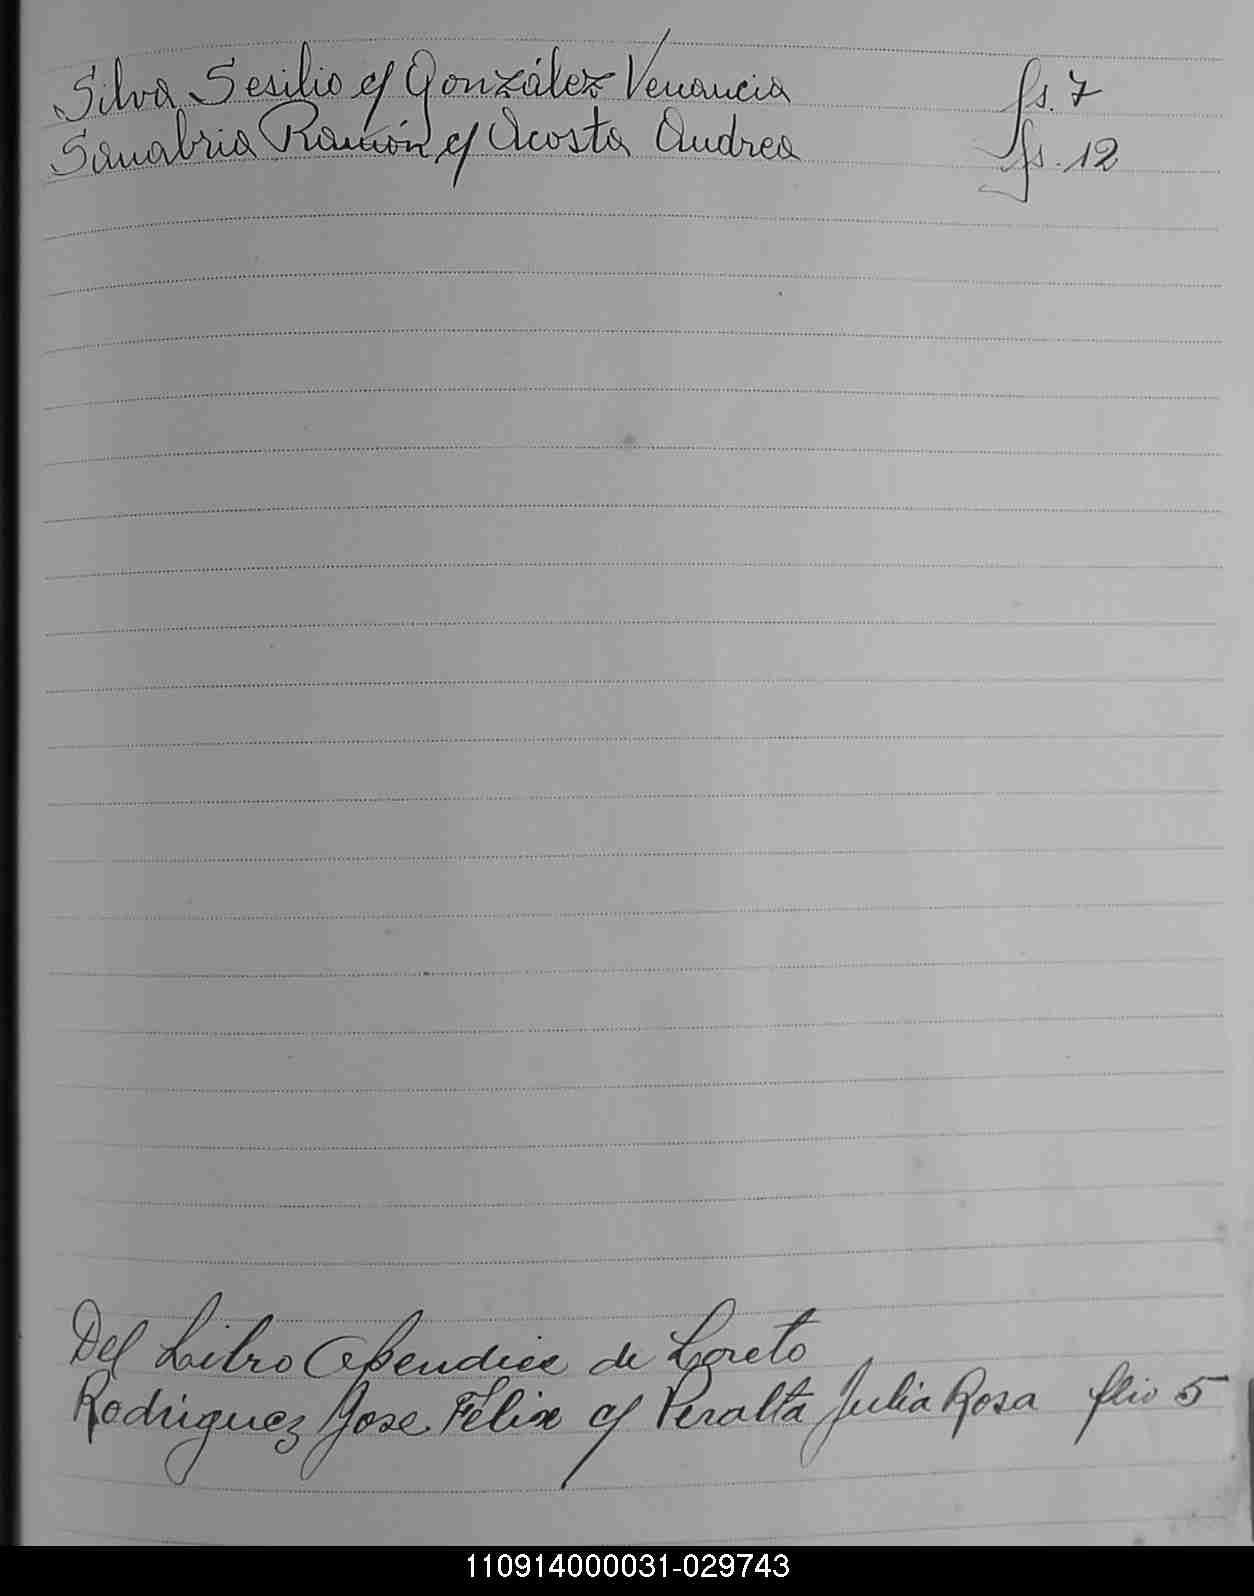 Silva Sesilio c/ González Venancia fs. 7
Sanabria Ramón c/ Acosta Andrea fs. 12
Del Libro Apendice de Loreto
Rodriguez Jose Félix c/ Peralta Julia Rosa flio 5
110914000031-029743